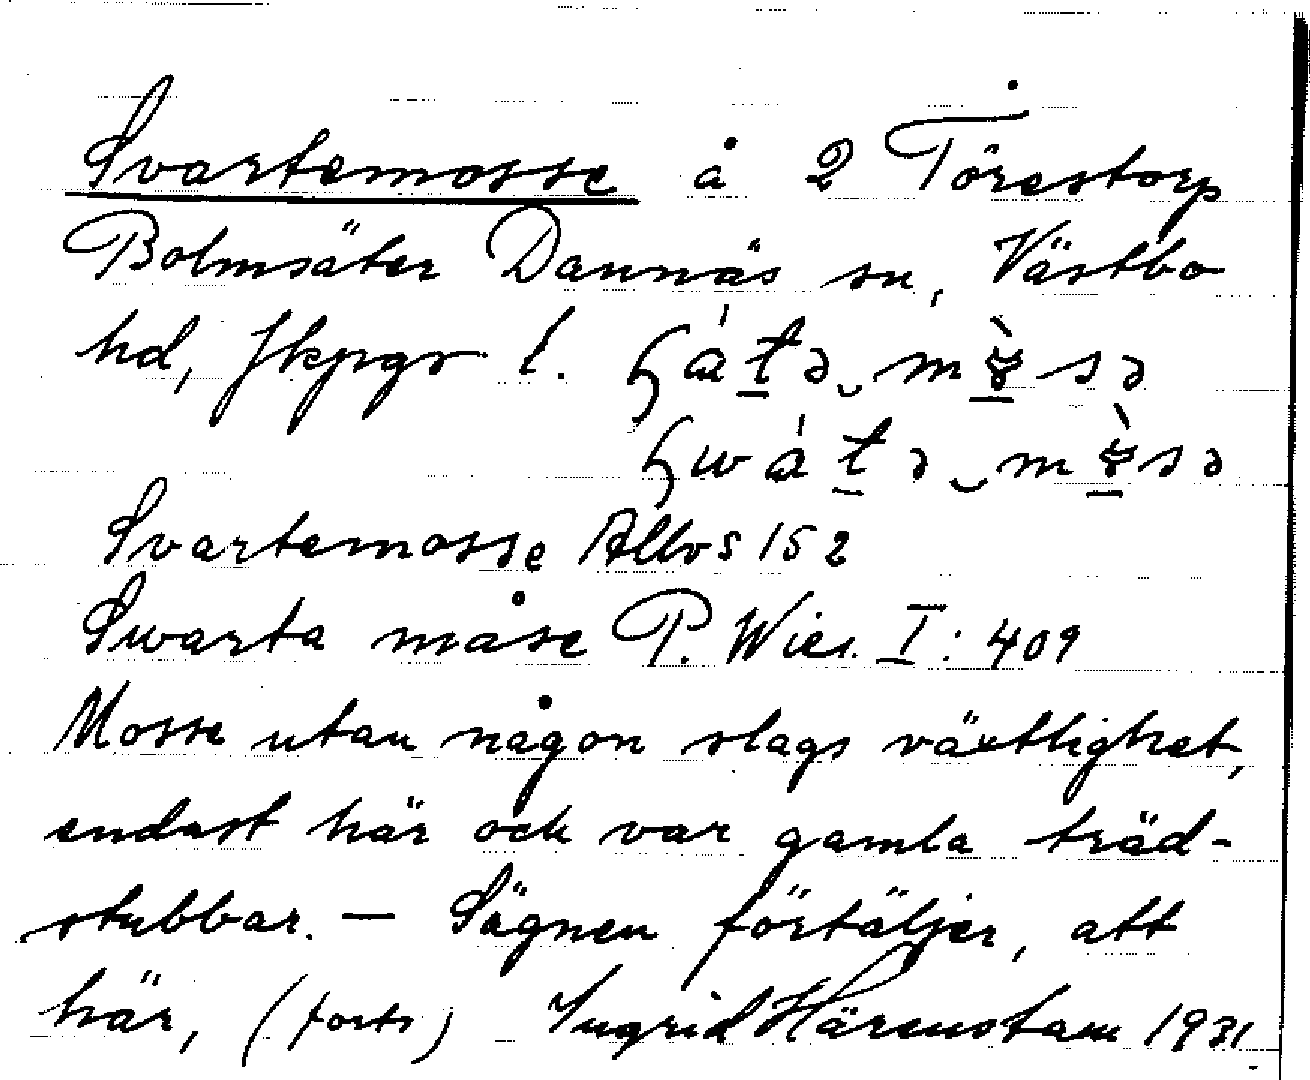 Svartemosse å 2 Törestorp
Bolmsäter Dannäs sn, Västbo
hd, Jkpgs l.
Svartemosse Allbo S 152
Swarta måse P. Wies. I: 409
Mosse utan någon slags växtlighet,
endast här och var gamla träd-
stubbar. — Sägnen förtäljer, att
här, (forts) Ingrid Härenstam 1931